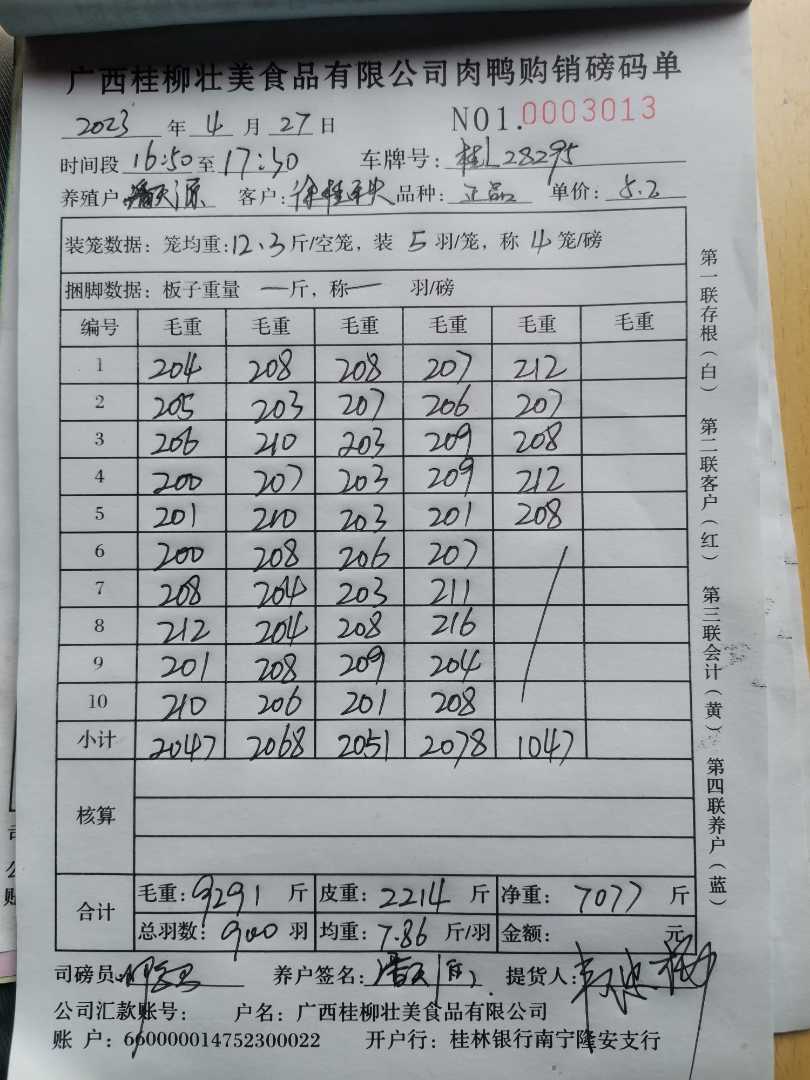 广西桂柳壮美食品有限公司肉鸭购销磅码单
2023 年 4 月 27 日 NO1.0003013
时间段 16:50 至 17:30 车牌号: 桂L28295
养殖户 客户: 徐桂 品种: 正品 单价: 5.2
装笼数据: 笼均重:12.3斤/空笼, 装 5 羽/笼, 称 4 笼/磅
捆脚数据: 板子重量 —斤, 称— 羽/磅
编号 毛重 毛重 毛重 毛重 毛重 毛重
1 204 208 208 207 212
2 205 203 207 206 207
3 206 210 203 209 208
4 200 207 203 209 212
5 201 210 203 201 208
6 200 208 206 207
7 208 204 203 211
8 212 204 208 216
9 201 208 209 204
10 210 206 201 208
小计 2047 2068 2051 2078 1047
核算
合计 毛重: 9291 斤 皮重: 2214 斤 净重: 7077 斤
总羽数: 900 羽 均重: 7.86 斤/羽 金额: 元
司磅员: 养户签名: 提货人:
公司汇款账号: 户名: 广西桂柳壮美食品有限公司
账 户: 660000014752300022 开户行: 桂林银行南宁隆安支行
第一联存根(白) 第二联客户(红) 第三联会计(黄) 第四联养户(蓝)